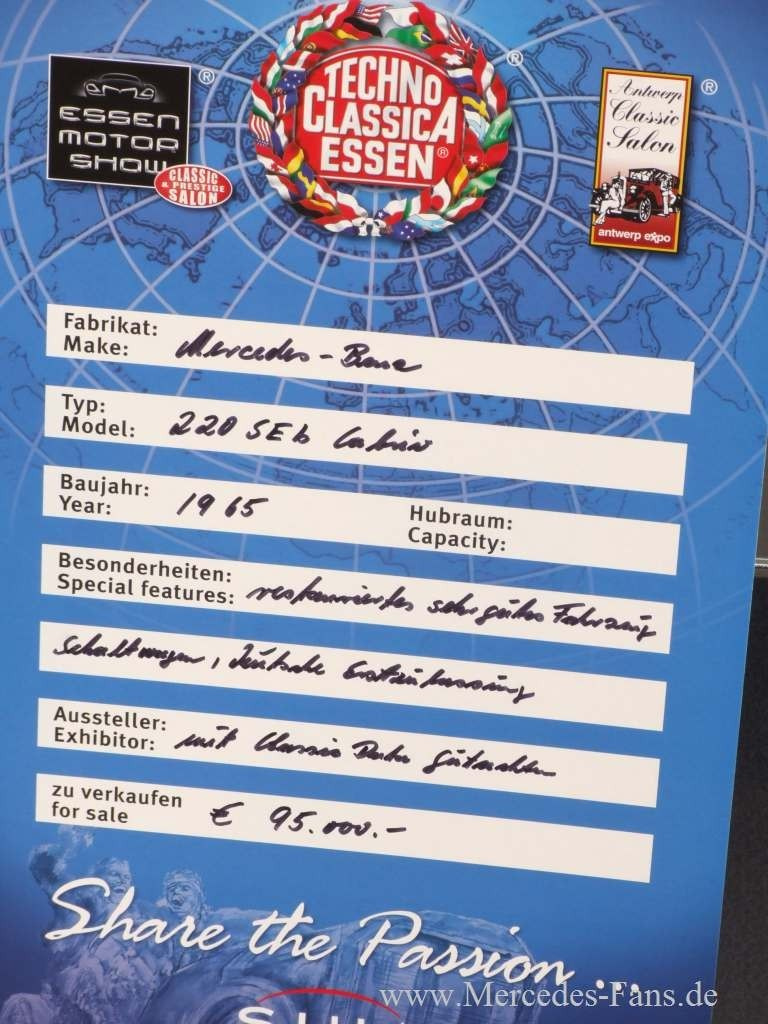 ESSEN
MOTOR
SHOW
®
CLASSIC
& PRESTIGE
SALON
TECHNO
CLASSICA
ESSEN®
®
Antwerp
Classic
Salon
antwerp expo
®
Fabrikat:
Make: Mercedes-Benz
Typ:
Model: 220 SEb Cabrio
Baujahr:
Year: 1965
Hubraum:
Capacity:
Besonderheiten:
Special features: restauriertes sehr gutes Fahrzeug
Schaltwagen, Deutsche Erstzulassung
Aussteller:
Exhibitor: mit Classic Data Gutachten
zu verkaufen
for sale € 95.000.-
Share the Passion ...
www.Mercedes-Fans.de